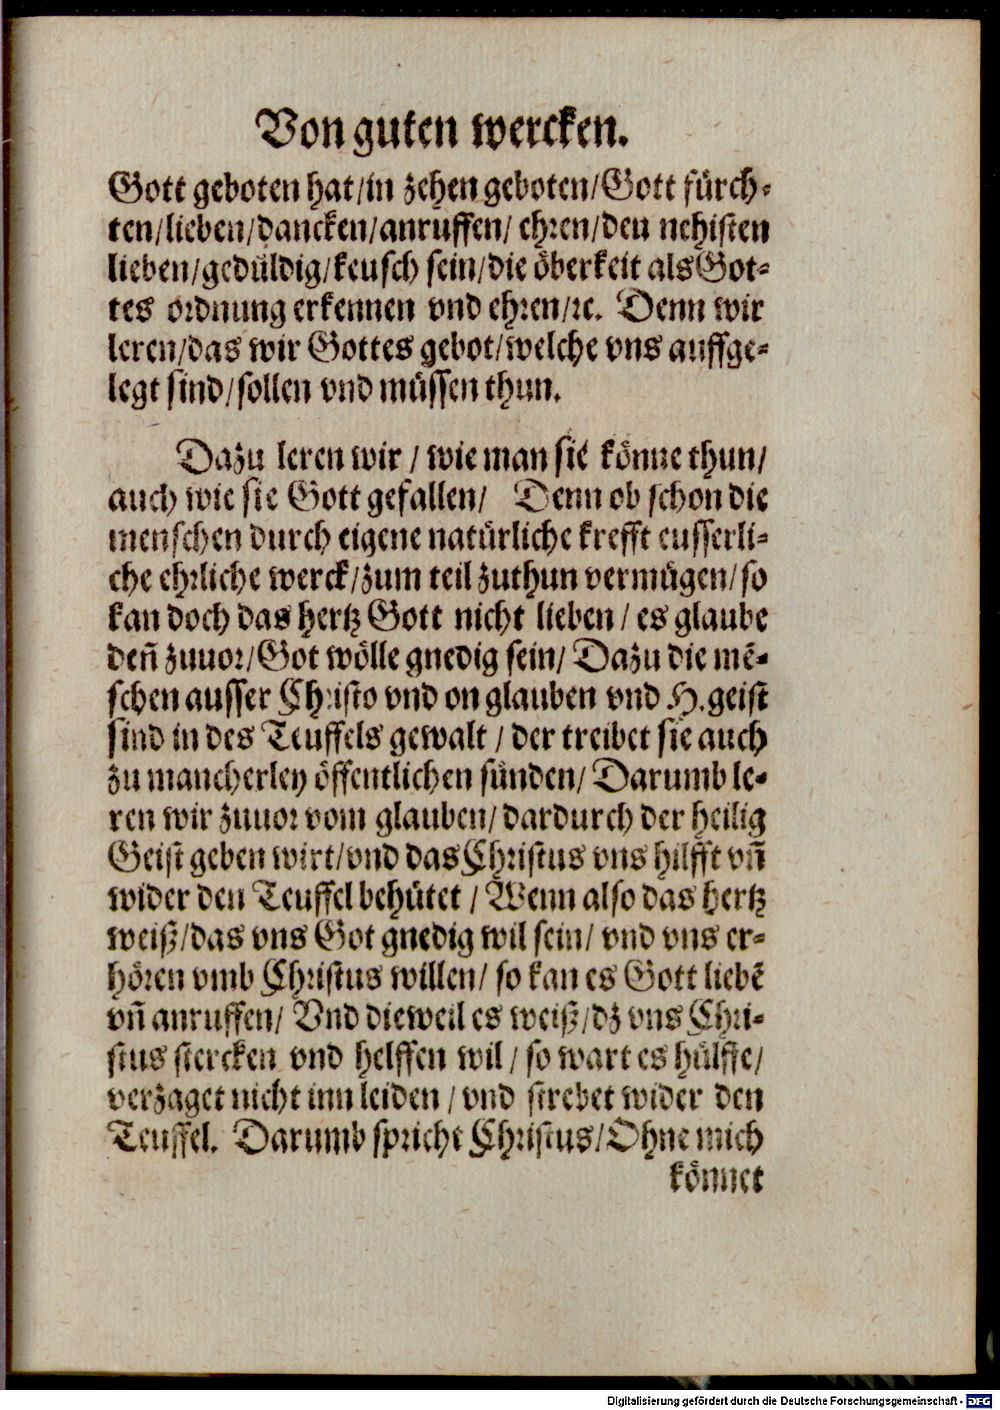 Von guten wercken.
Gott geboten hat/in zehen geboten/Gott fürch-
ten/lieben/dancken/anruffen/ ehren/den nehisten
lieben/gedüldig/keusch sein/die öberkeit als Got-
tes ordnung erkennen vnd ehren/ꝛc. Denn wir
leren/das wir Gottes gebot/welche vns auffge-
legt sind/sollen vnd müssen thun.
Dazu leren wir / wie man sie könne thun/
auch wie sie Gott gefallen/ Denn ob schon die
menschen durch eigene natürliche krefft eusserli-
che ehrliche werck/zum teil zuthun vermügen/so
kan doch das hertz Gott nicht lieben / es glaube
den̄ zuuor/Got wölle gnedig sein/ Dazu die mē-
schen ausser Christo vnd on glauben vnd H.geist
sind in des Teuffels gewalt / der treibet sie auch
zu mancherley öffentlichen sünden/ Darumb le-
ren wir zuuor vom glauben/ dardurch der heilig
Geist geben wirt/vnd das Christus vns hilfft vn̄
wider den Teuffel behütet / Wenn also das hertz
weiß/das vns Got gnedig wil sein/ vnd vns er-
hören vmb Christus willen/ so kan es Gott liebē
vn̄ anruffen/ Vnd dieweil es weiß/dz vns Chri-
stus stercken vnd helffen wil / so wart es hülffe/
verzaget nicht inn leiden / vnd strebet wider den
Teuffel. Darumb spricht Christus/Ohne mich
könnet
Digitalisierung gefördert durch die Deutsche Forschungsgemeinschaft - DFG